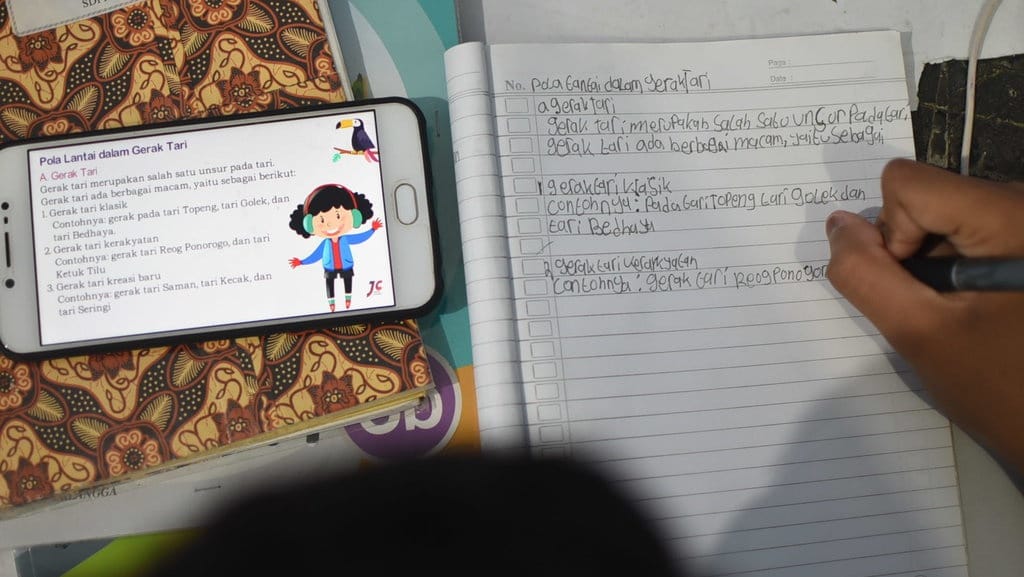 SDI
Pola Lantai dalam Gerak Tari
A. Gerak Tari
Gerak tari merupakan salah satu unsur pada tari.
Gerak tari ada berbagai macam, yaitu sebagai berikut:
1. Gerak tari klasik
Contohnya: gerak pada tari Topeng, tari Golek, dan
tari Bedhaya.
2. Gerak tari kerakyatan
Contohnya: gerak tari Reog Ponorogo, dan tari
Ketuk Tilu
3. Gerak tari kreasi baru
Contohnya: gerak tari Saman, tari Kecak, dan
tari Seringi
JC
LANGGA
Page :
Date :
No. Pola lantai dalam gerak Tari
a gerak tari
gerak tari merupakan salah satu unsur Pada tari,
gerak tari ada berbagai macam, yaitu sebagai
1 gerak tari klasik
contohnya : Pada tari Topeng tari Golek dan
tari Bedhaya
2 gerak tari kerakyatan
Contohnya : gerak tari Reog Ponogor